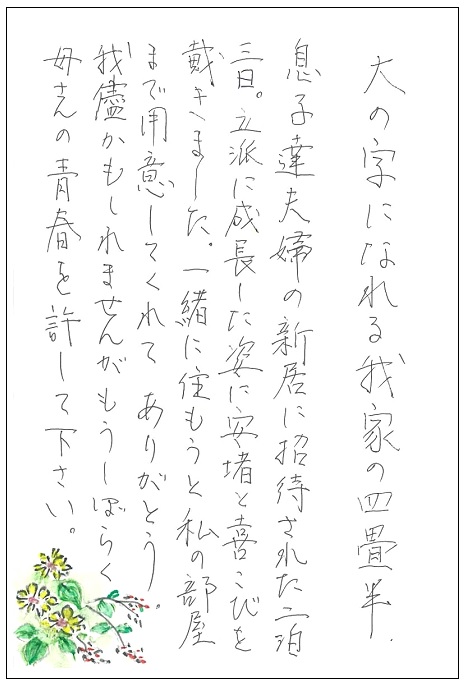 大の字になれる我家の四畳半.
息子達夫婦の新居に招待された二泊
三日。立派に成長した姿に安堵と喜こびを
戴きました。一緒に住もうと私の部屋
まで用意してくれて ありがとう.
我儘かもしれませんがもうしばらく
母さんの青春を許して下さい。